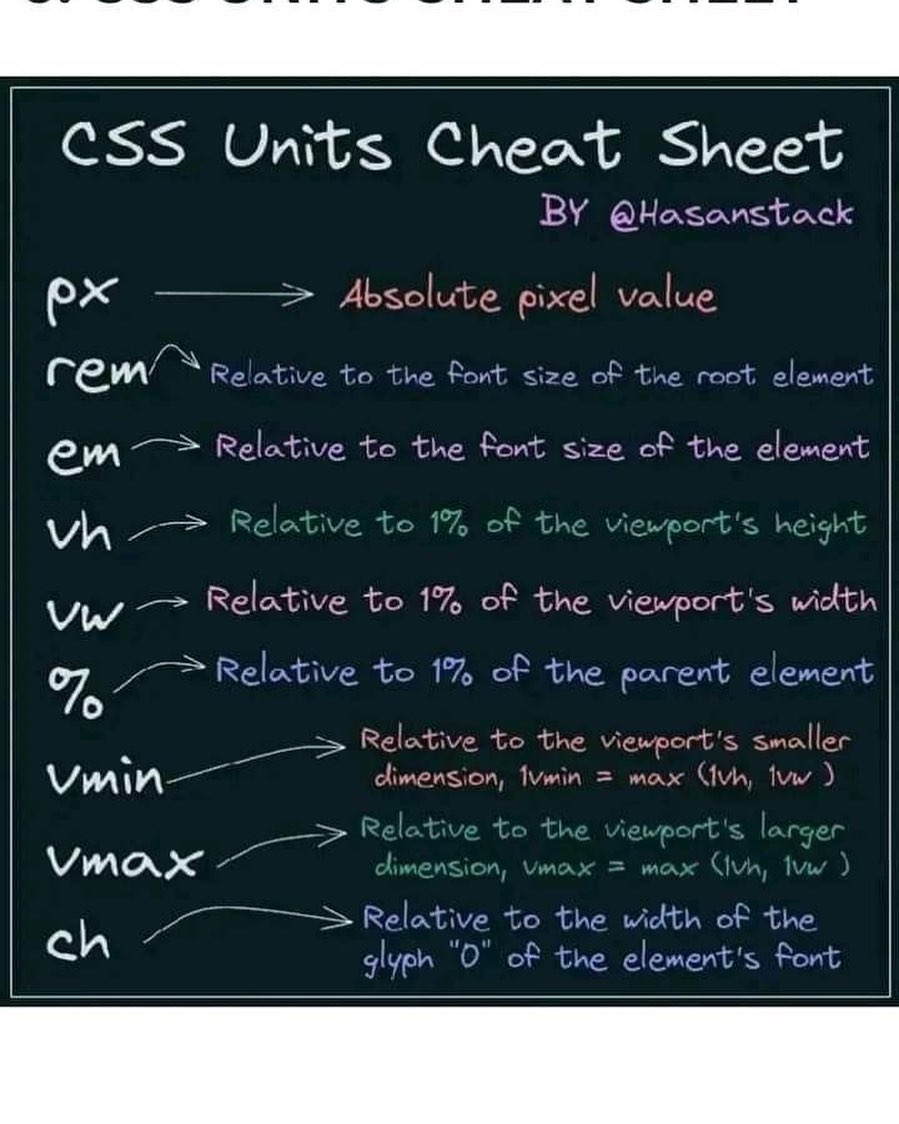 CSS Units Cheat Sheet
BY @Hasanstack
px Absolute pixel value
rem Relative to the font size of the root element
em Relative to the font size of the element
vh Relative to 1% of the viewport's height
vw Relative to 1% of the viewport's width
% Relative to 1% of the parent element
vmin Relative to the viewport's smaller
dimension, 1vmin = max (1vh, 1vw )
vmax Relative to the viewport's larger
dimension, vmax = max (1vh, 1vw )
ch Relative to the width of the
glyph "0" of the element's font